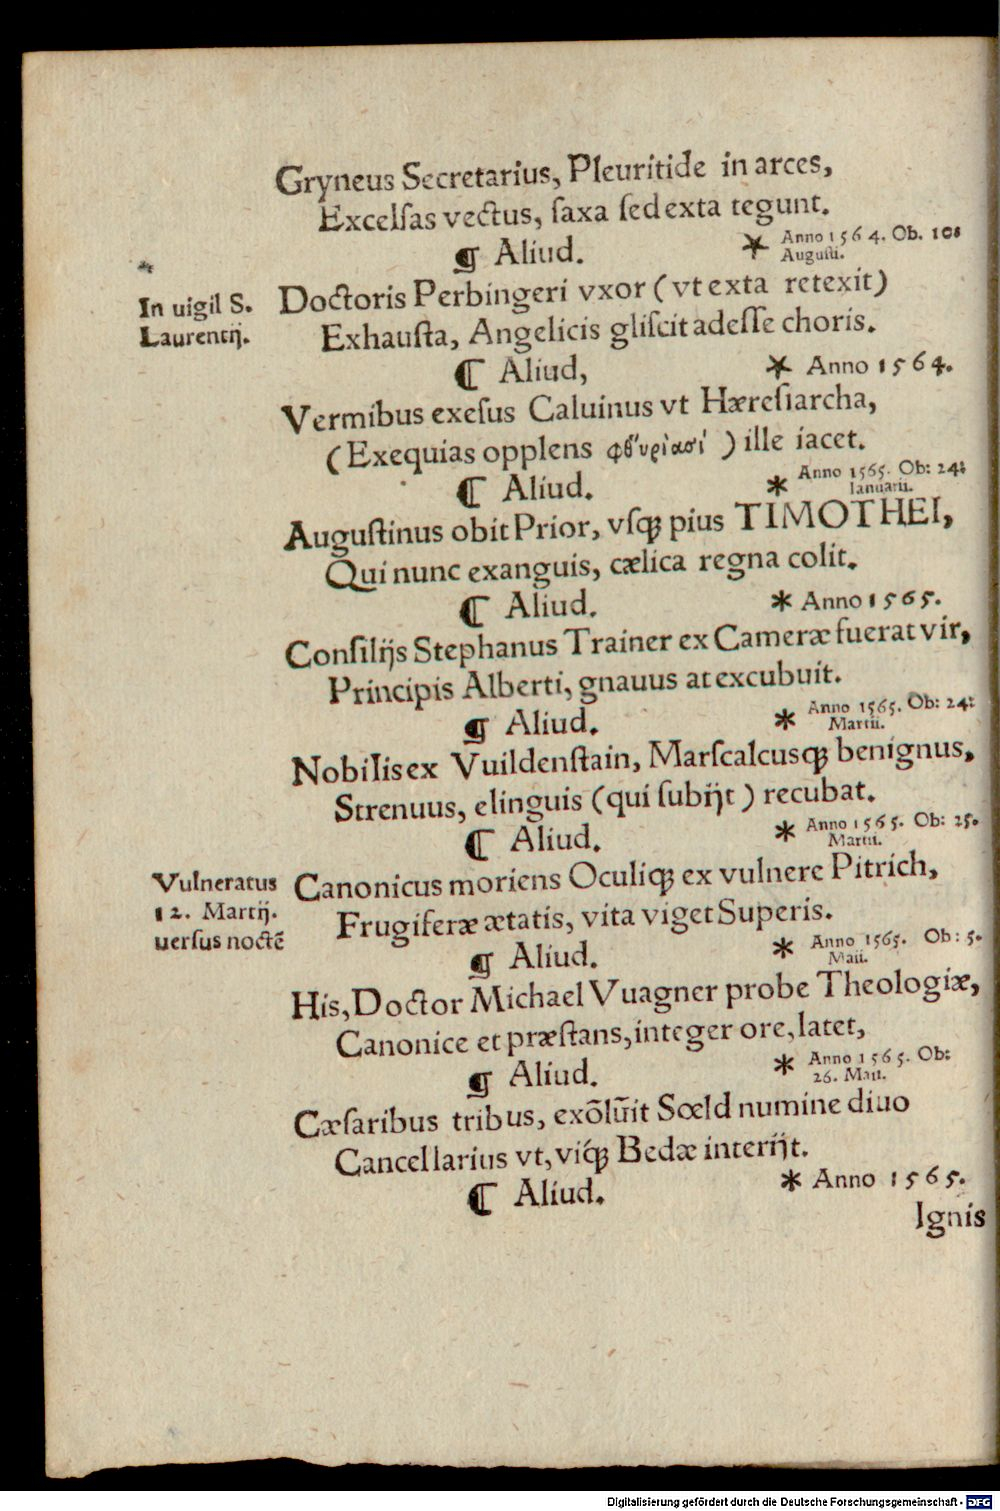 Gryneus Secretarius, Pleuritide in arces,
Excelſas vectus, ſaxa ſed exta tegunt.
¶ Aliud. * Anno 1564. Ob. 10:
Auguſti.
In uigil S.
Laurentij.
Doctoris Perbingeri vxor (vt exta retexit)
Exhauſta, Angelicis gliſcit adeſſe choris.
¶ Aliud, * Anno 1564.
Vermibus exeſus Caluinus vt Hæreſiarcha,
(Exequias opplens ) ille iacet.
¶ Aliud. * Anno 1565. Ob: 24:
Ianuarii.
Auguſtinus obit Prior, vſqꝫ pius TIMOTHEI,
Qui nunc exanguis, cælica regna colit.
¶ Aliud. * Anno 1565.
Conſilijs Stephanus Trainer ex Cameræ fuerat vir,
Principis Alberti, gnauus at excubuit.
¶ Aliud. * Anno 1565. Ob: 24:
Martii.
Nobilis ex Vuildenſtain, Marſcalcusqꝫ benignus,
Strenuus, elinguis (qui ſubijt) recubat.
¶ Aliud. * Anno 1565. Ob: 25.
Martii.
Vulneratus
12. Martij.
uerſus noctē
Canonicus moriens Oculiqꝫ ex vulnere Pitrich,
Frugiferæ ætatis, vita viget Superis.
¶ Aliud. * Anno 1565. Ob: 5.
Maii.
His, Doctor Michael Vuagner probe Theologiæ,
Canonice et præſtans, integer ore, latet,
¶ Aliud. * Anno 1565. Ob:
26. Maii.
Cæſaribus tribus, Sœld numine diuo
Cancellarius vt, Bedæ interijt.
¶ Aliud. * Anno 1565.
Ignis
Digitalisierung gefördert durch die Deutsche Forschungsgemeinschaft - DFG